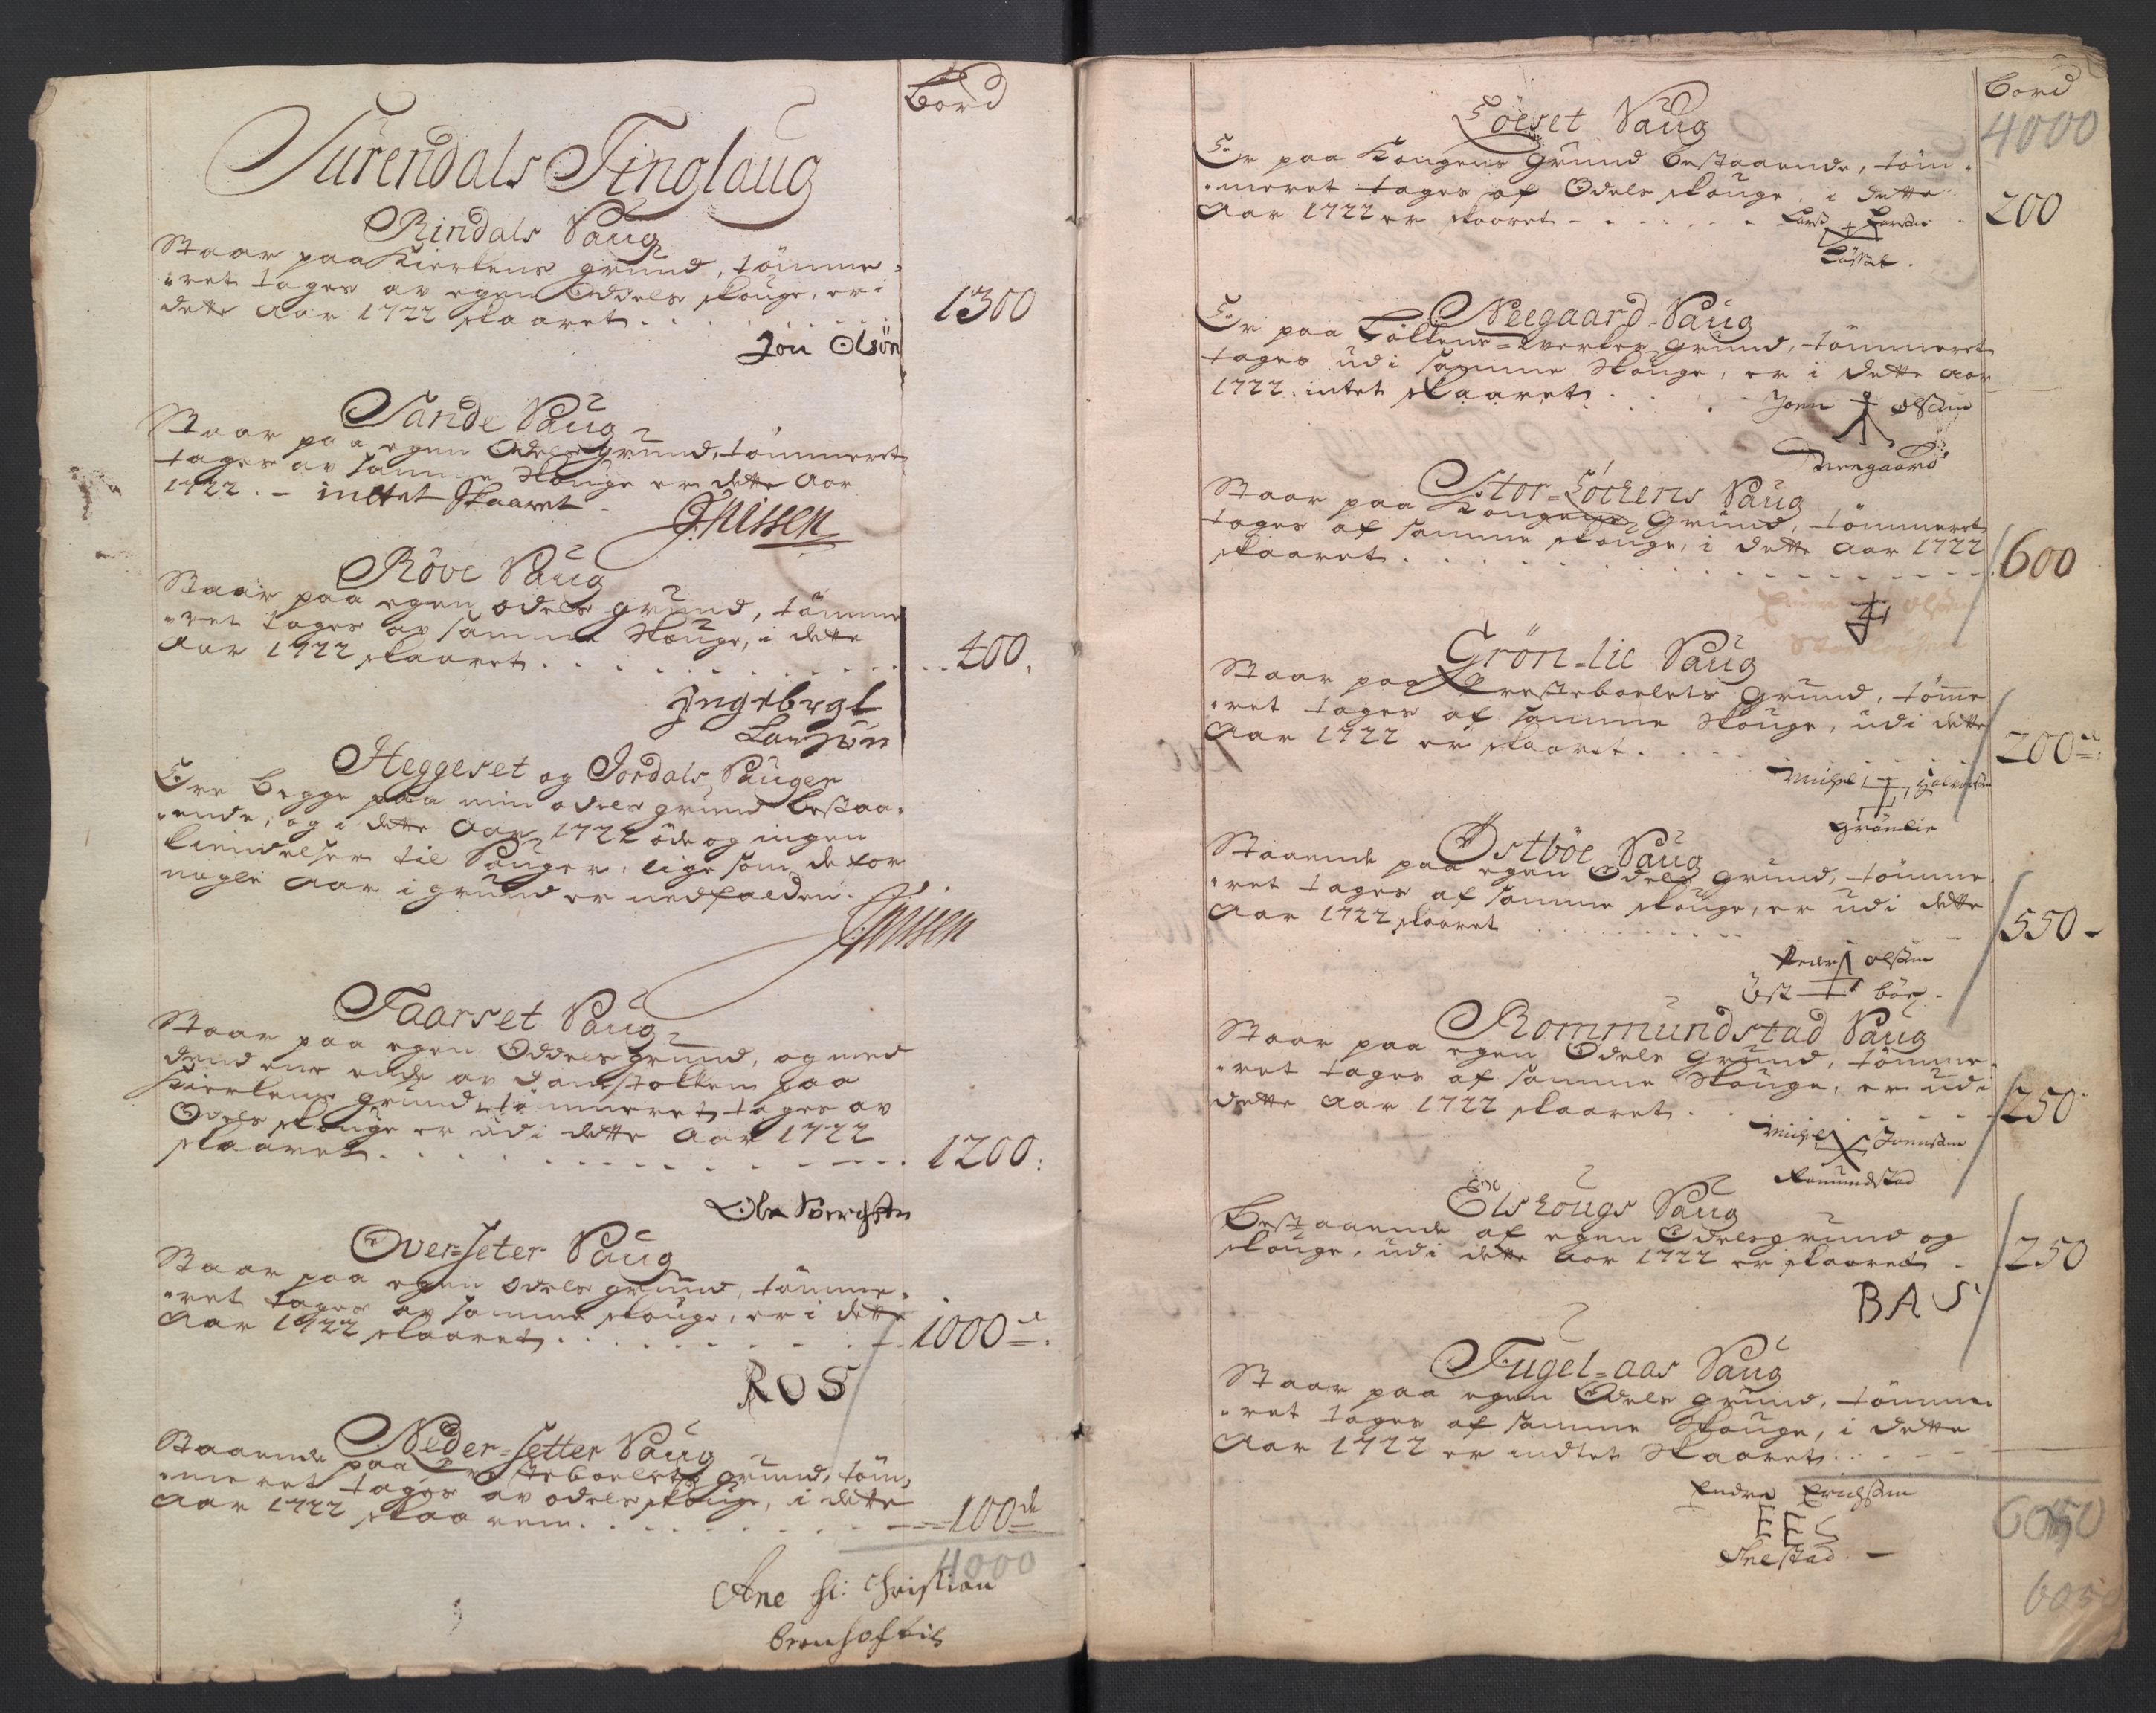 Bord
Surendals Tinglaug
Rindals Saug
Staar paa Kierkens grund, tømme-
ret tages av egen Oddels skouge, er i
dette Aar 1722 skaaret . . . 1300
Jon Olsön
Sande Saug
Staar paa egen Odels grund, tømmeret
tages av samme Skouge er dette Aar
1722. - inttet Skaaret.
Röve Saug
Staar paa egen odels grund, tømme
ret tages av samme Skouge, i dette
Aar 1722 skaaret . . . 400.
Ingebrgt
Larsøn
Heggeset og Jordals Sauger
Ere begge paa min odels grund bestaa-
ende, og i dette Aar 1722 öde og ingen
kiendelser til Sauger, lige som de for
nogle Aar i grund er nedfalden.
Faarset Saug
Staar paa egen Oddels grund, og med
dend ene ende av Damstokken paa
Kierkens grund, tømmeret tages av
Odels skouge er udi dette Aar 1722
skaaret . . . 1200:
Ole
Over-seter Saug
Staar paa egen odels grund, tømme-
ret tages av samme skouge, er i dette
Aar 1722 skaaret . . . 1000
ROS
Neder-setter Saug
Staaende paa Præsteboelets grund, töm-
meret tages av odels skouge, i dette
Aar 1722 skaaren . . . 100
4000
Ane Christian
Bord
4000
Löeset Saug
Er paa Kongens Grund bestaaende, töm-
meret tages af Odels skouge, i dette
Aar 1722 er skaaret . . . 200
Lars Larsen
Löset.
Neegaard Saug
Er paa Verkes Grund, tömmeret
tages udi samme Skouge, er i dette Aar
1722. intet skaaret.
Joen Olsøn
Neegaard
Stor-Löchens Saug
Staar paa Kongens Grund, tömmeret
tages af samme skouge, i dette Aar 1722
skaaret . . . 600
Olsøn
Grön-lie Saug
Staar paa Præsteboelets Grund, tömme
ret tages af samme Skouge, udi dette
Aar 1722 er skaaret . . . 200
Michel
Grönlie
Östböe Saug
Staaende paa egen Odels Grund, tömme
ret tages af samme skouge, er udi dette
Aar 1722 skaaret . . . 550
Peder Olsøn
Öst böe.
Rommundstad Saug
Staar paa egen Odels Grund, tömme
ret tages af samme Skouge, er udi
dette Aar 1722 skaaret . . . 250
Michel Joensøn
Romundstad
Elskougs Saug
Bestaaende af egen Odelsgrund og
skouge, udi dette Aar 1722 er skaaret . 250
BAS
Fugel-aas Saug
Staar paa egen Odels Grund, tömme
ret tages af samme Skouge, i dette
Aar 1722 er indtet Skaaret.
Endre Erichsøn
EES
6050